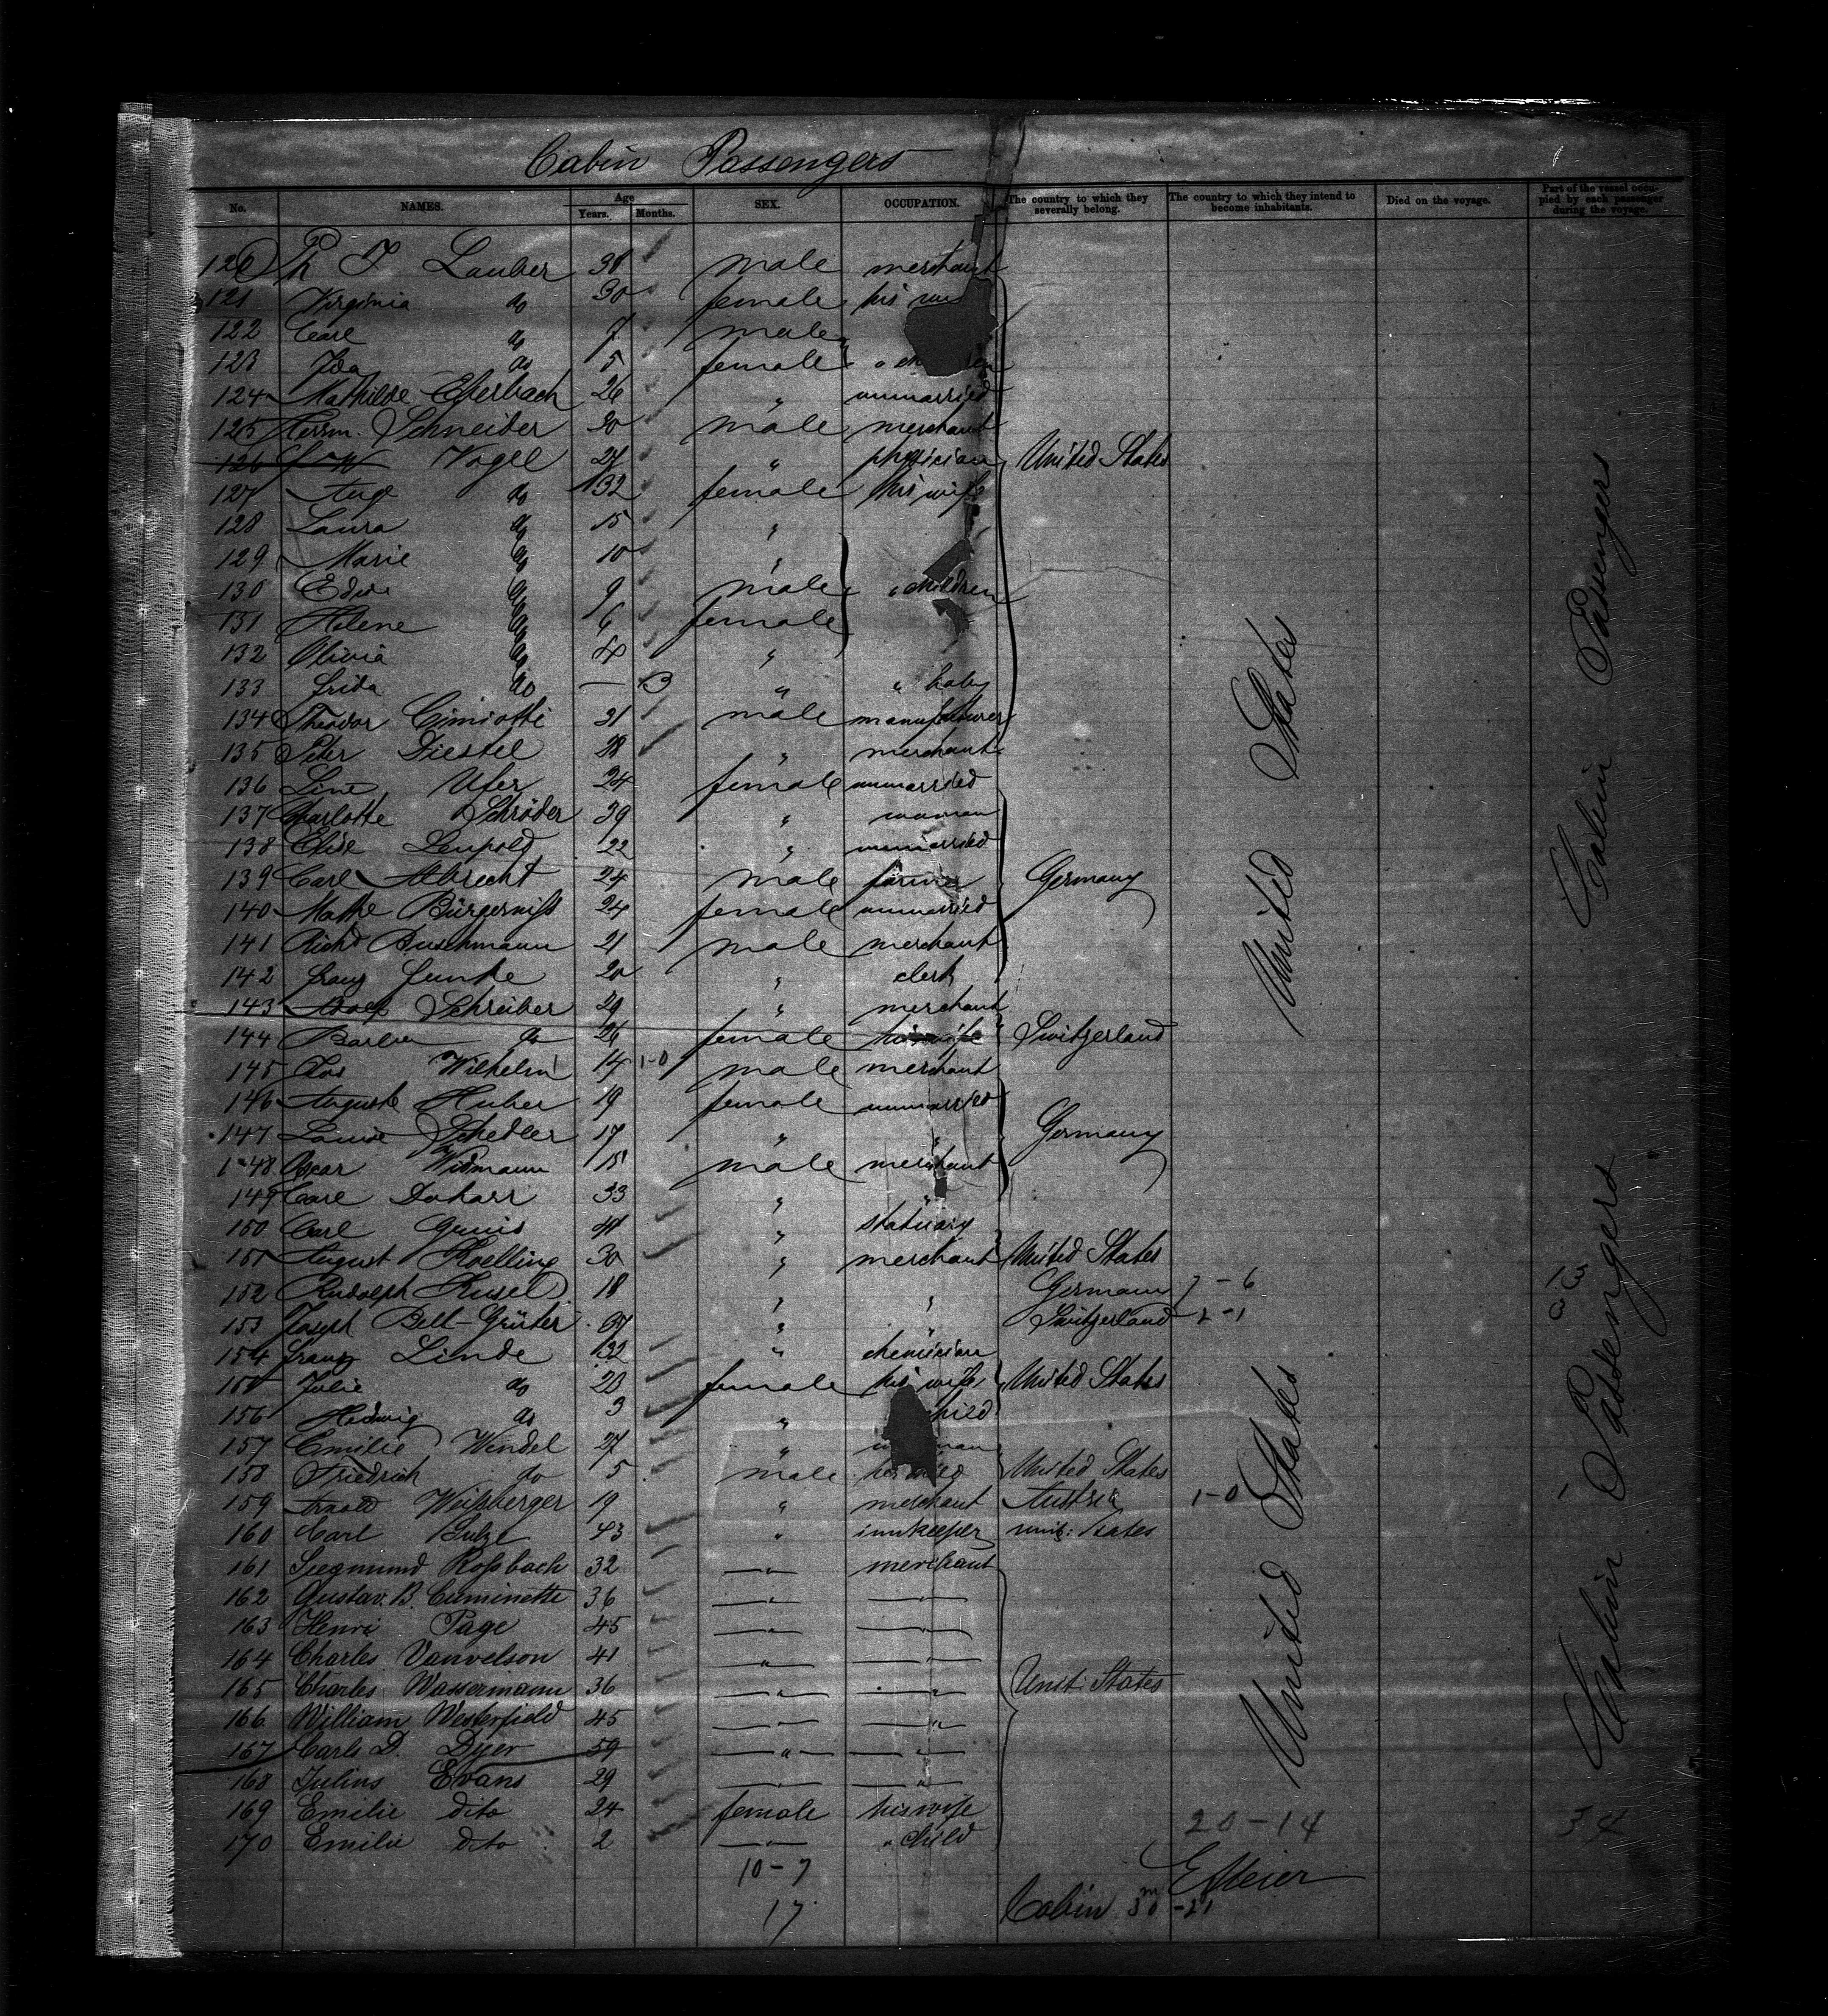 Cabin Passengers
No. NAMES. Age Years. Months. SEX. OCCUPATION. The country to which they severally belong. The country to which they intend to become inhabitants. Died on the voyage. Part of the vessel occupied by each passenger during the voyage.
120 Ph J Lauber 38 male merchant
121 Virginia do 30 female his
122 Carl do 7 male
123 Ida do 5 female "
124 Mathilde 26 " unmarried
125 Herm. Schneider 30 male merchant
126 Vogel " physician United States
127 Auge do 32 female his wife
128 Laura do 15 "
129 Marie do 10 "
130 do 9 male " children
131 Helene do 6 female
132 Olivia do 4 "
133 Frida do — 3 " " baby
134 Theodor Cimiotti 21 male manufacturer
135 Peter Diestel 28 " merchant
136 Line Ufer 24 female unmarried
137 Charlotte Schröder 39 " woman
138 Elise Leupold 22 " unmarried
139 Carl Albrecht 24 male farmer Germany
140 24 female unmarried
141 Richd Buschmann 21 male merchant
142 Franz 20 " clerk
143 Adolf Schreiber 29 " merchant
144 do 26 female his wife Switzerland
145 Wilhelm 14 1-0 male merchant
146 Auguste Huber 19 female unmarried
147 Louise Schedler 17 " " Germany
148 Oscar Widmann 15 male merchant
149 Carl 33 " "
150 Carl " statuary
151 August Roelling 30 " merchant United States
152 Rudolph 18 " " Germany 7-6 13
153 Joseph Bell-Grüter " " Switzerland 2-1 3
154 Franz Linde 32 " chemician
155 Julie do 23 female his wife United States
156 Hedwig do 3 " child
157 Emilie Windel 27 "
158 Friedrich do 5 male her child United States
159 Arnold Weißberger 19 " merchant Austria 1-0 1
160 Carl Bulze 43 " innkeeper unit: States
161 Siegmund Roßbach 32 —"— merchant
162 Gustav. B. Cuminette 36 —"— —"—
163 Henri Page 45 —"— —"—
164 Charles Vanvelson 41 —"— —"—
165 Charles Wassermann 36 —"— —"— Unit: States
166 William Westerfield 45 —"— —"—
167 Carls D. Dyer 59 —"— —"—
168 Julius Evans 29 —"— —"—
169 Emilie dito 24 female his wife
170 Emilie dito 2 —"— " child
United States
United States
Cabin Passengers
Cabin Passengers
20-14 34
10-7
17
E Meier
Cabin 30 -21